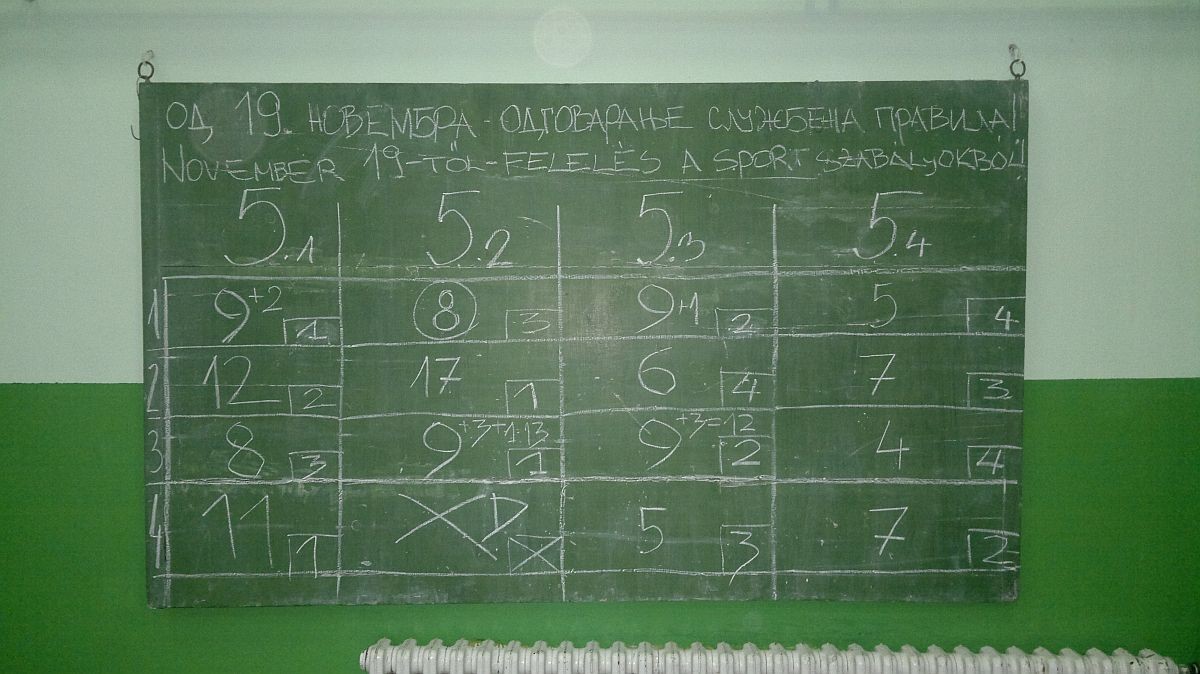 ОД 19. НОВЕМБРА - ОДГОВАРАЊЕ СЛУЖБЕНА ПРАВИЛА!
NOVEMBER 19-TŐL - FELELÉS A SPORT SZABÁLYOKBÓL!
5.1 5.2 5.3 5.4
1 9+2 1 8 3 9+1 2 5 4
2 12 2 17 1 6 4 7 3
3 8 3 9+3+1=13 1 9+3=12 2 4 4
4 11 1 XD X 5 3 7 2